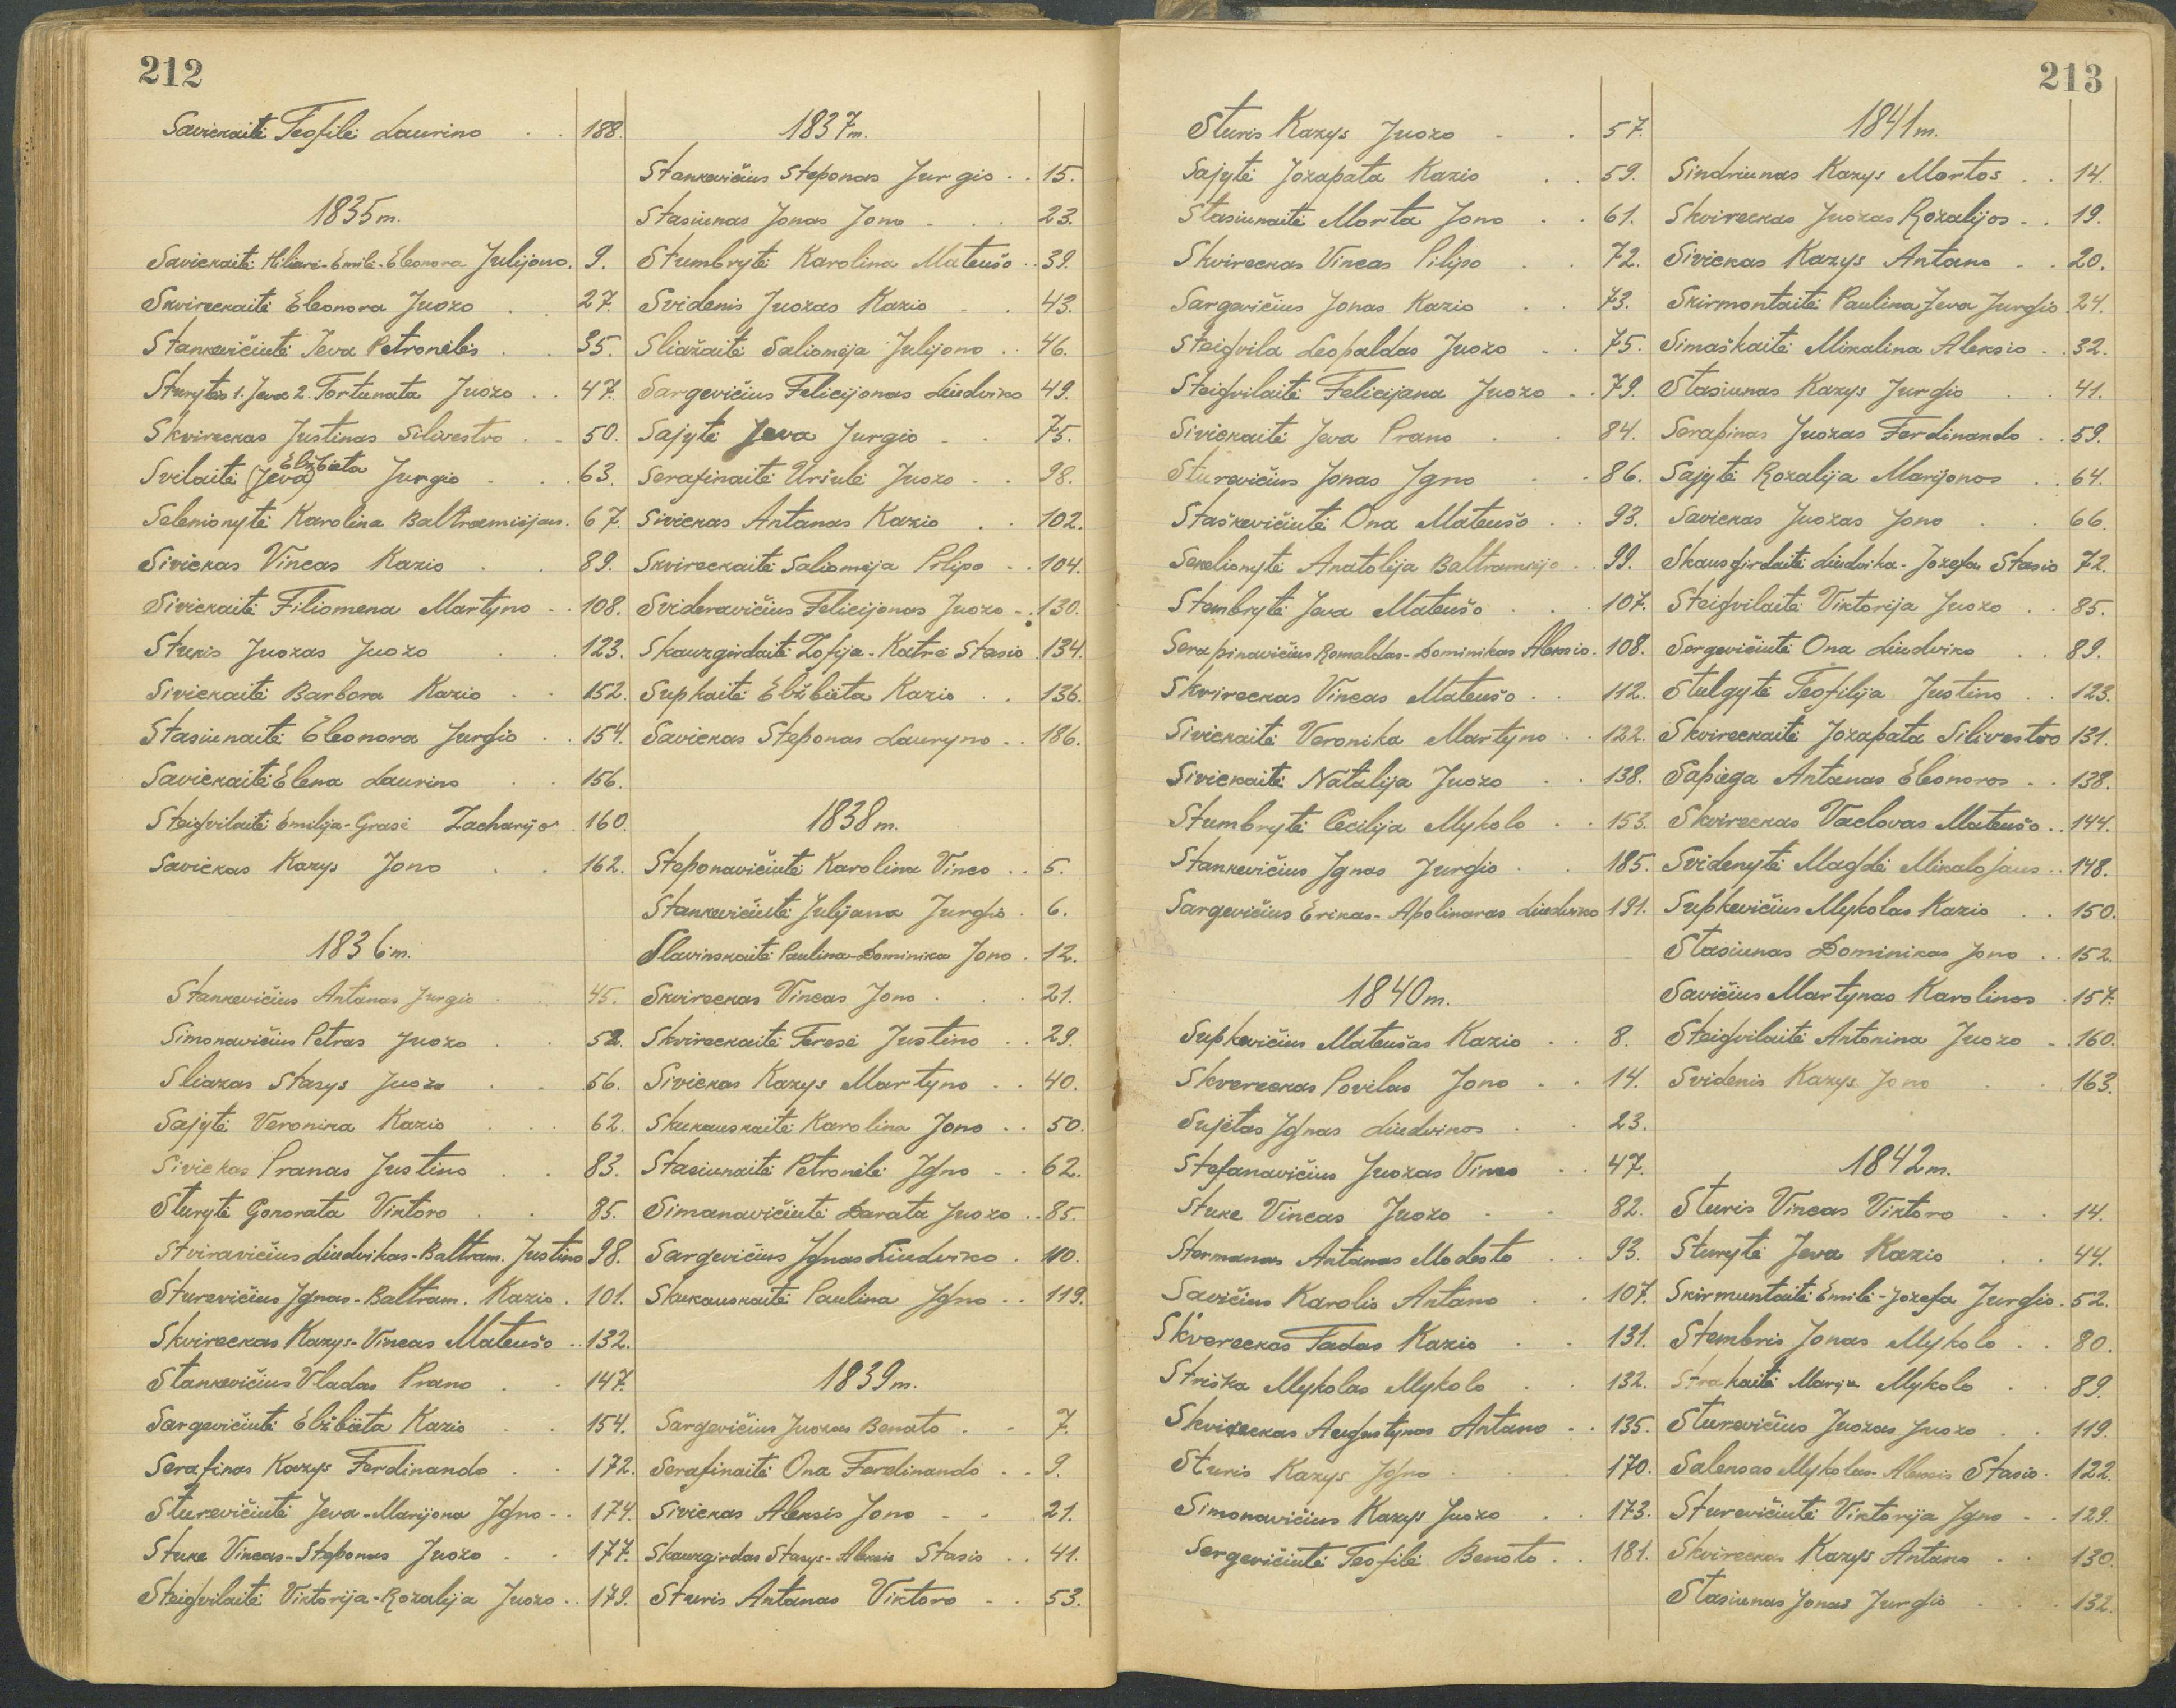 212
Savickaitė Teofilė Laurino . . 188.
1835 m.
Savickaitė Hiliarė-Emilė-Eleonora Julijono. 9.
Skvireckaitė Eleonora Juozo . 27.
Stankevičiutė Ieva Petronėlės . . 35.
Sturytės 1. Jeva 2. Fortunata Juozo . . 47.
Skvireckas Justinas Silvestro . . 50.
Svilaitė (Jeva) Elžbieta Jurgio . . . 63.
Selenionytė Karolina Baltramiejaus. 67.
Sivickas Vincas Kazio . . 89.
Sivickaitė Filiomena Martyno . . 108.
Sturis Juozas Juozo . . 123.
Sivickaitė Barbora Kazio . . 152.
Stasiunaitė Eleonora Jurgio . . 154.
Savickaitė Elena Laurino . . 156.
Steigvilaitė Emilija-Grasė Zacharijo . 160.
Savickas Kazys Jono . . 162.
1836 m.
Stankevičius Antanas Jurgio . . 45.
Simonavičius Petras Juozo . . 52.
Sliazas Stasys Juozo . . 56.
Sajytė Veronika Kazio . . . 62.
Sivickas Pranas Justino . . 83.
Sturytė Gonorata Viktoro . . 85.
Stviravičius Liudvikas-Baltram. Justino 98.
Sturevičius Jgnas-Baltram. Kazio . 101.
Skvireckas Kazys-Vincas Mateušo . . 132.
Stankevičius Vladas Prano . . 147.
Sargevičiutė Elžbieta Kazio . . 154.
Serafinas Kazys Ferdinando . . 172.
Sturevičiutė Jeva-Marijona Jgno . . 174.
Sture Vincas-Steponas Juozo . . 177.
Steigvilaitė Viktorija-Rozalija Juozo . . 179.
1837 m.
Stankevičius Steponas Jurgio . . 15.
Stasiunas Jonas Jono . . . 23.
Stumbrytė Karolina Mateušo . . 39.
Svidenis Juozas Kazio . . 43.
Sliažaitė Saliomėja Julijono . . 46.
Sargevičius Felicijonas Liudviko 49.
Sajytė Jeva Jurgio . . 75.
Serafinaitė Uršulė Juozo . . 98.
Sivickas Antanas Kazio . . 102.
Skvireckaitė Saliomėja Pilipo . . 104.
Svideravičius Felicijonas Juozo . . 130.
Skauzgirdaitė Zofija-Katrė Stasio . 134.
Supkaitė Elžbieta Kazio . . 136.
Savickas Steponas Lauryno . . 186.
1838 m.
Steponavičiutė Karolina Vinco . . 5.
Stankevičiutė Julijana Jurgio . 6.
Slavinskaitė Paulina-Dominika Jono . 12.
Skvireckas Vincas Jono . . . 21.
Skvireckaitė Teresė Justino . . 29.
Sivickas Kazys Martyno . . 40.
Skukauskaitė Karolina Jono . . 50.
Stasiunaitė Petronėlė Jgno . . 62.
Simanavičiutė Darata Juozo . . 85.
Sargevičius Jgnas Liudviko . 110.
Skukauskaitė Paulina Jgno . . 119.
1839 m.
Sargevičius Juozas Benato . . 7.
Serafinaitė Ona Ferdinando . . 9.
Sivickas Aleksis Jono . . 21.
Skauzgirdas Stasys-Aleksis Stasio . . 41.
Sturis Antanas Viktoro . . 53.
213
Sturis Kazys Juozo . . 57.
Sajytė Jozapata Kazio . . 59.
Stasiunaitė Morta Jono . . 61.
Skvireckas Vincas Pilipo . . 72.
Sargevičius Jonas Kazio . . 73.
Steigvila Leopaldas Juozo . . 75.
Steigvilaitė Felicijana Juozo . . 79.
Sivickaitė Jeva Prano . . 84.
Sturevičius Jonas Jgno . . 86.
Staškevičiutė Ona Mateušo . . 93.
Sekelionytė Anatolija Baltramiejo . . 99.
Stambrytė Jeva Mateušo . . . 107.
Serapinavičius Romaldas-Dominikas Aleksio. 108.
Skvireckas Vincas Mateušo . . 112.
Sivickaitė Veronika Martyno . . 122.
Sivickaitė Natalija Juozo . . 138.
Stumbrytė Cecilija Mykolo . . 153.
Stankevičius Jgnas Jurgio . . 185.
Sargevičius Erikas-Apolinaras Liudviko 191.
1840 m.
Supkevičius Mateušas Kazio . . 8.
Skvereckas Povilas Jono . . 14.
Sujetas Jgnas Liudvikos . . 23.
Stefanavičius Juozas Vinco . . 47.
Sture Vincas Juozo . . 82.
Stermanas Antanas Modesto . . 93.
Savičius Karolis Antano . . 107.
Skvereckas Tadas Kazio . . 131.
Striška Mykolas Mykolo . . 132.
Skvireckas Augustynas Antano . . 135.
Sturis Kazys Jgno . . . 170.
Simonavičius Kazys Juozo . . 173.
Sergevičiutė Teofilė Benato . . 181.
1841 m.
Sindriunas Kazys Martos . . 14.
Skvireckas Juozas Rozalijos . . 19.
Sivickas Kazys Antano . . 20.
Skirmontaitė Paulina Jeva Jurgio . 24.
Simaškaitė Mikalina Aleksio . . 32.
Stasiunas Kazys Jurgio . . 41.
Serapinas Juozas Ferdinando . . 59.
Sajytė Rozalija Marijonos . . 64.
Savickas Juozas Jono . . 66.
Skausgirdaitė Liudvika-Jozefa Stasio 72.
Steigvilaitė Viktorija Juozo . . 85.
Sergevičiutė Ona Liudviko . . 89.
Stulgytė Teofilija Justino . . 123.
Skvireckaitė Jozapata Silivestro 131.
Sapiega Antanas Eleonoros . . 138.
Skvireckas Vaclovas Mateušo . . 144.
Svidenytė Magdė Mikalojaus . . 148.
Supkevičius Mykolas Kazio . . 150.
Stasiunas Dominikas Jono . . 152.
Savičius Martynas Karolinos . 157.
Steigvilaitė Antonina Juozo . . 160.
Svidenis Kazys Jono . . 163.
1842 m.
Sturis Vincas Viktoro . . 14.
Sturytė Jeva Kazio . . 44.
Skirmuntaitė Emilė-Jozefa Jurgio. 52.
Stembris Jonas Mykolo . . 80.
Strakaitė Marija Mykolo . . 89.
Sturevičius Juozas Juozo . . 119.
Salensas Mykolas-Aleksis Stasio . 122.
Sturevičiutė Viktorija Jgno . . 129.
Skvireckas Kazys Antano . . 130.
Stasiunas Jonas Jurgio . . . 132.